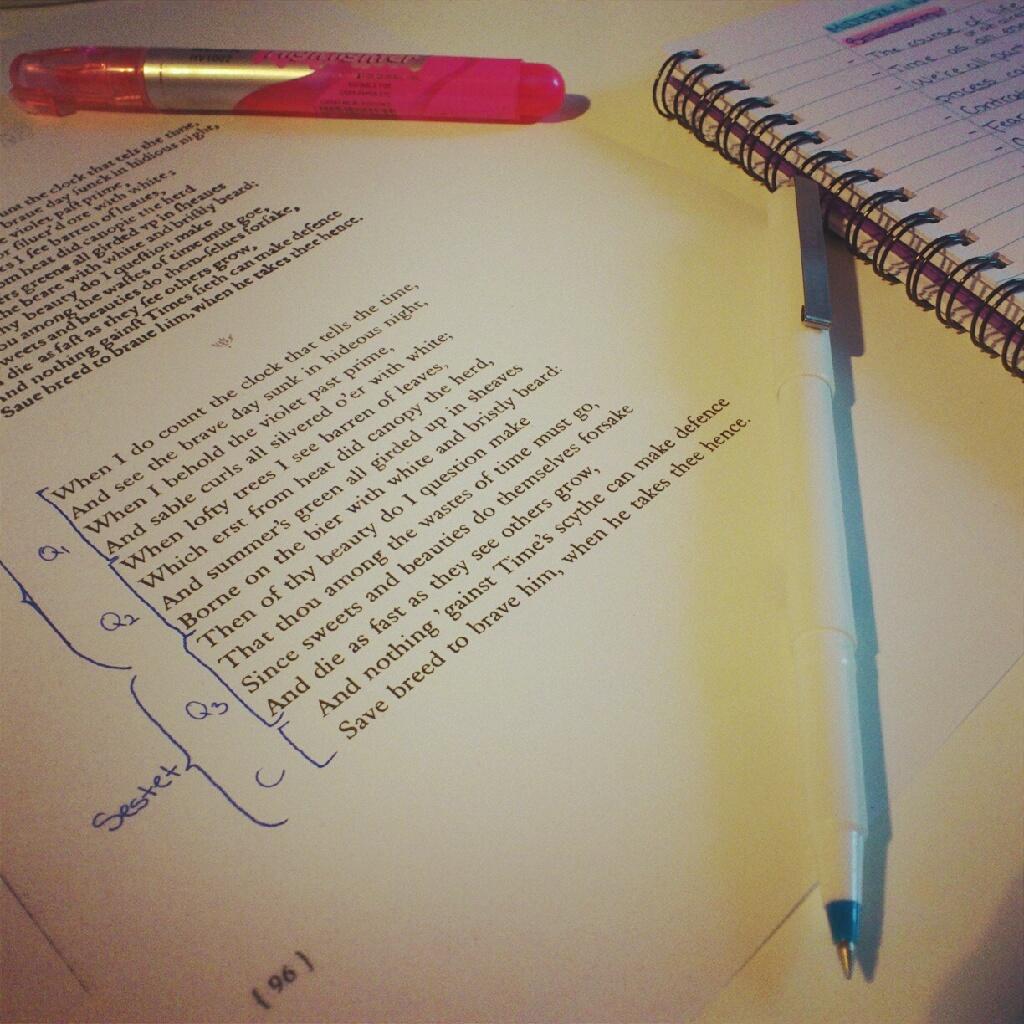 Highlighter
unt the clock that tels the time,
braue day ſunck in hidious night,
violet paſt prime,
ſiluer'd ore with white;
I ſee barren of leaues,
from heat did canopie the herd
greene all girded vp in ſheaues
the beare with white and briſtly beard:
thy beauty do I queſtion make
ou among the waſtes of time muſt goe,
weets and beauties do them-ſelues forſake,
die as faſt as they ſee others grow,
And nothing gainſt Times ſieth can make defence
Saue breed to braue him, when he takes thee hence.
When I do count the clock that tells the time,
And see the brave day sunk in hideous night,
When I behold the violet past prime,
And sable curls all silvered o'er with white;
When lofty trees I see barren of leaves,
Which erst from heat did canopy the herd,
And summer's green all girded up in sheaves
Borne on the bier with white and bristly beard:
Then of thy beauty do I question make
That thou among the wastes of time must go,
Since sweets and beauties do themselves forsake
And die as fast as they see others grow,
And nothing 'gainst Time's scythe can make defence
Save breed to brave him, when he takes thee hence.
Q1
Q2
Q3
C
Sestet
[ 96 ]
- The course of life
- Time as an
- We're all part
process
- Contra
- Fear